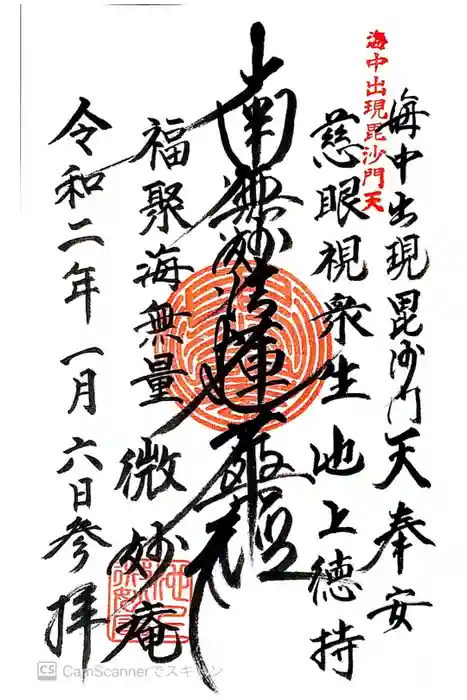 海中出現毘沙門天
海中出現毘沙門天奉安
慈眼視衆生池上徳持
南無妙法蓮華経
福聚海無量微妙庵
令和二年一月六日参拝
CS CamScannerでスキャン